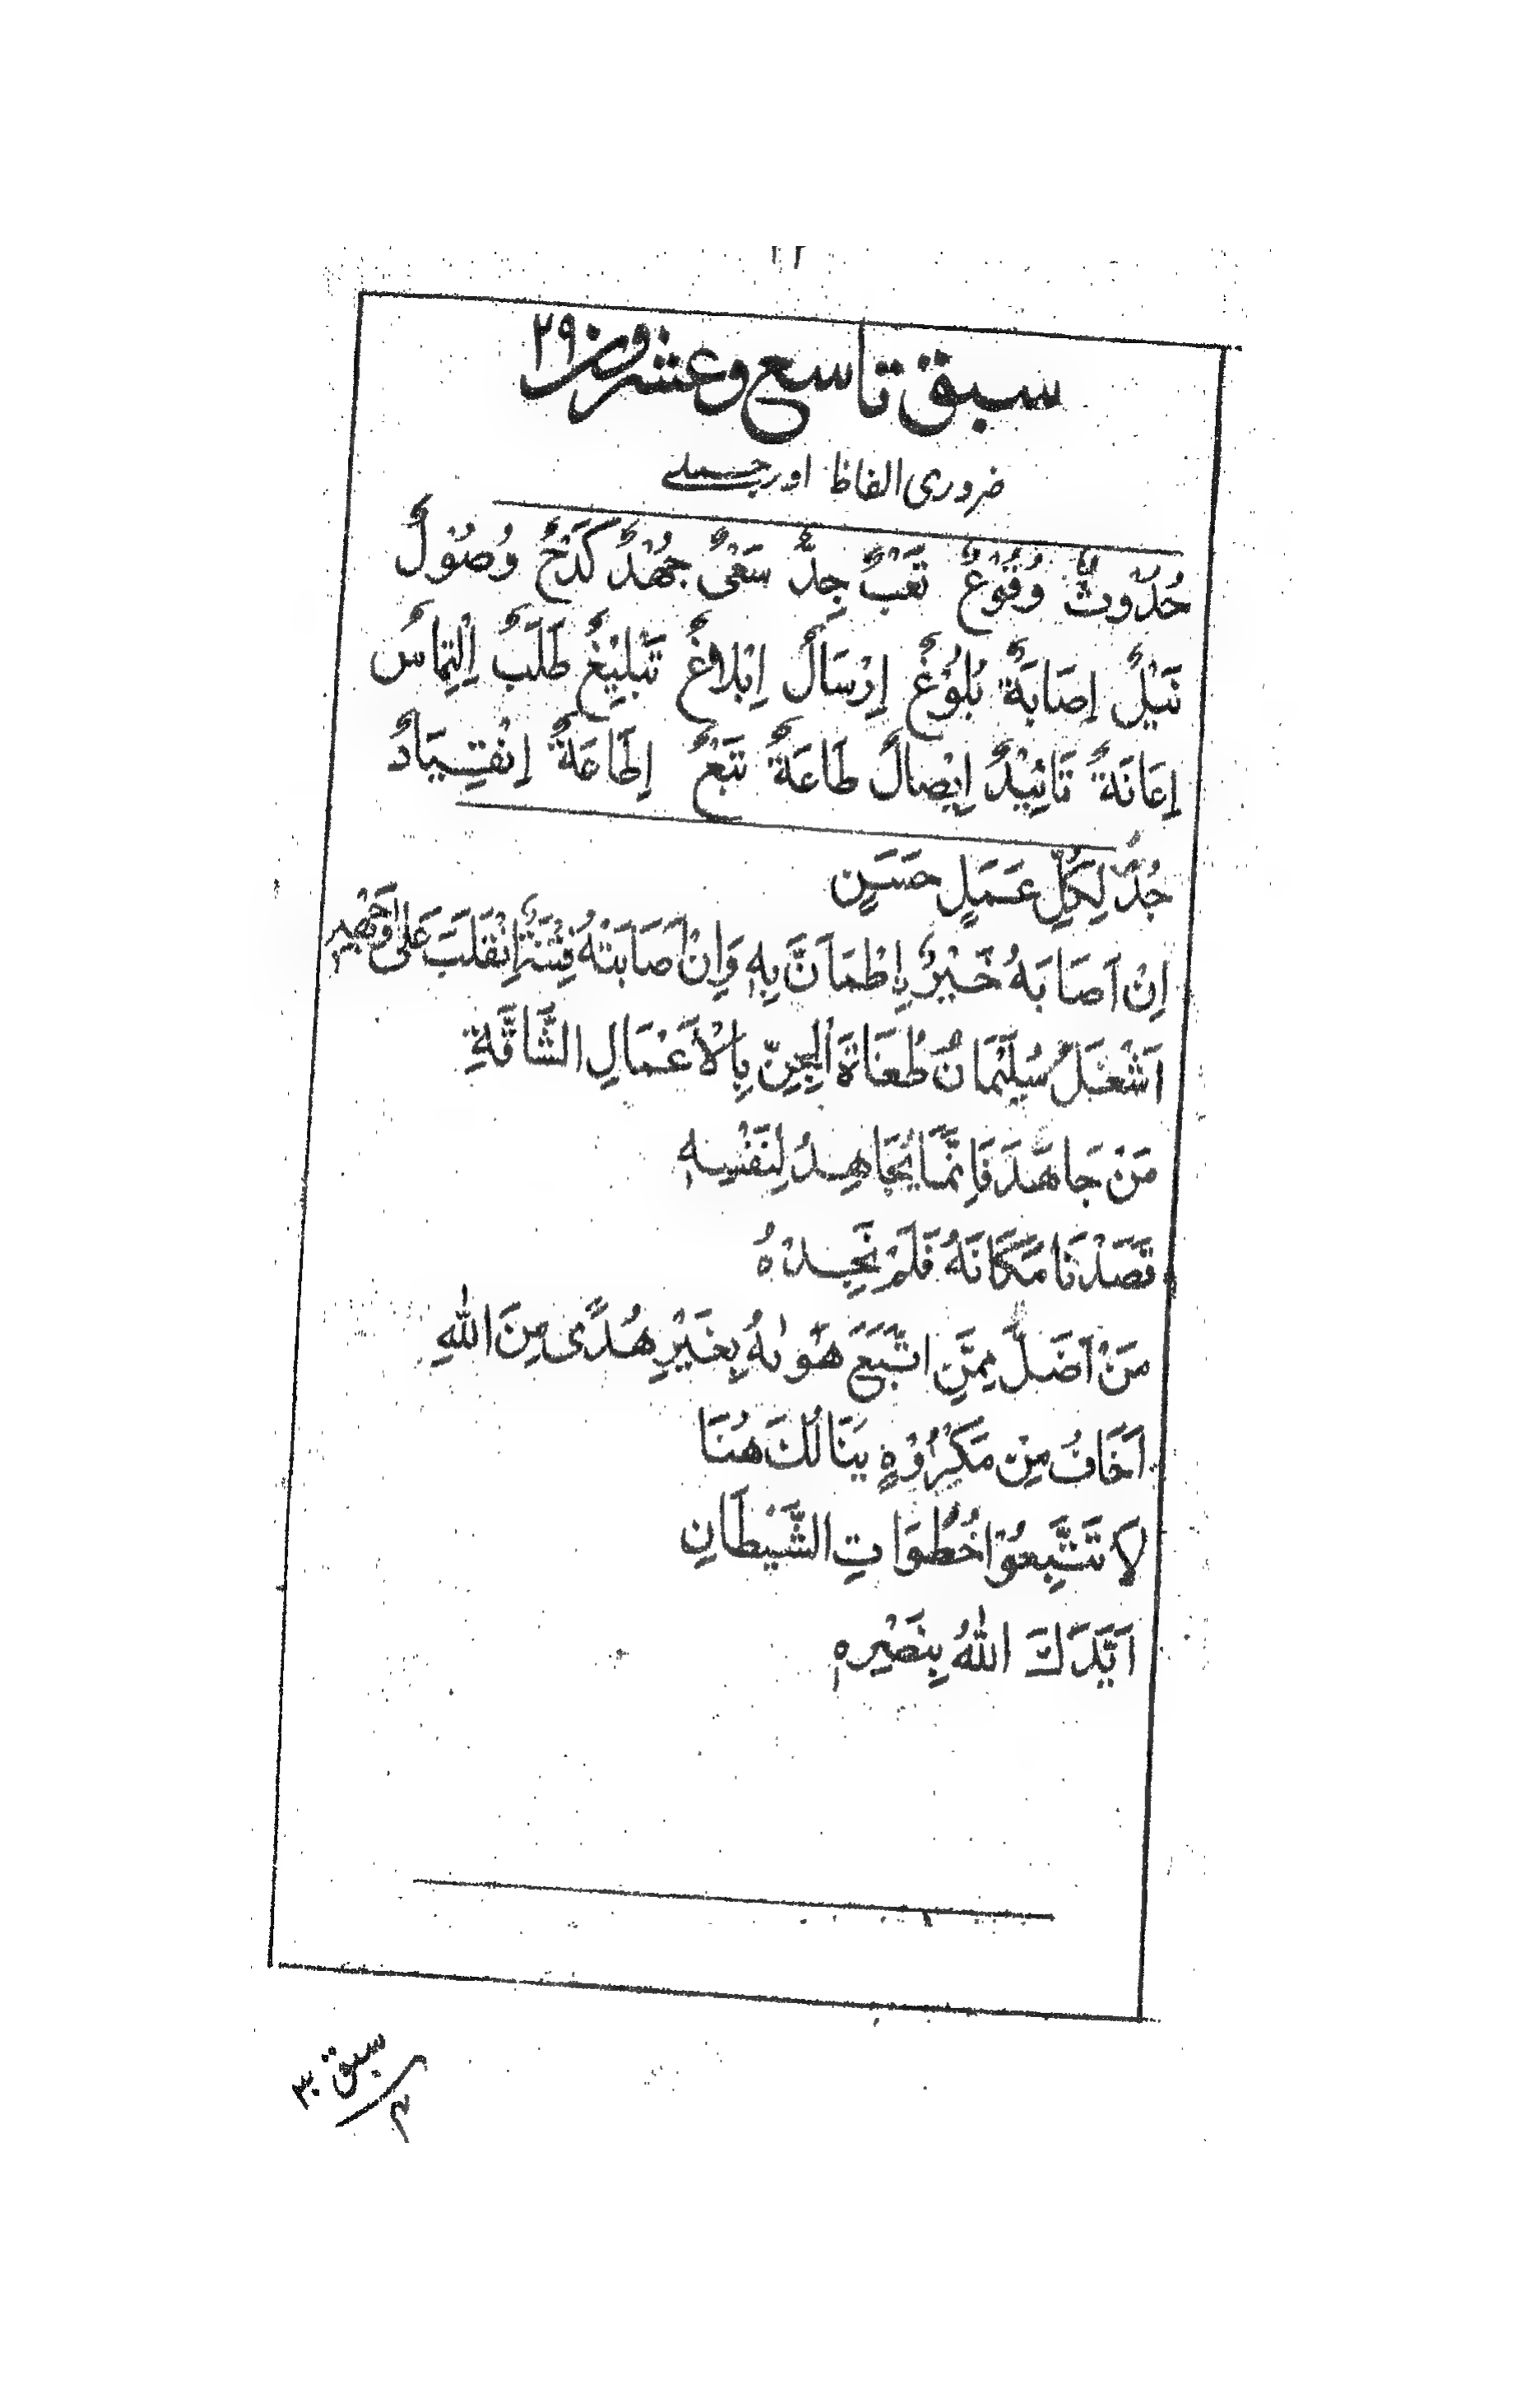 سبق تاسع وعشرون ٢٩
ضروری الفاظ اور جملے
حُدُوْثٌ وُقُوْعٌ تَعْبٌ جِدٌّ سَعْیٌ جُهْدٌ كَدْحٌ وُصُوْلٌ
نَيْلٌ اِصَابَةٌ بُلُوْغٌ اِرْسَالٌ اِبْلَاغٌ تَبْلِيْغٌ طَلَبٌ اِلْتِمَاسٌ
اِعَانَةٌ تَائِيْدٌ اِيْصَالٌ طَاعَةٌ تَبْعٌ اِطَاعَةٌ اِنْقِيَادٌ
جُدَّ لِكُلِّ عَمَلٍ حَسَنٍ
اِنْ اَصَابَهُ خَيْرٌ اِطْمَاَنَّ بِهٖ وَاِنْ اَصَابَتْهُ فِتْنَةٌ اِنْقَلَبَ عَلٰى وَجْهِهٖ
اَشْغَلَ سُلَيْمَانُ طُغَاةَ الْجِنِّ بِالْاَعْمَالِ الشَّاقَّةِ
مَنْ جَاهَدَ فَاِنَّمَا يُجَاهِدُ لِنَفْسِهٖ
قَصَدْنَا مَكَانَهُ فَلَمْ نَجِدْهُ
مَنْ اَضَلُّ مِمَّنِ اتَّبَعَ هَوٰىهُ بِغَيْرِ هُدًى مِنَ اللّٰهِ
اَخَافُ مِنْ مَكْرُوْهٍ يَنَالُكَ هُنَا
لَا تَتَّبِعُوْا خُطُوَاتِ الشَّيْطَانِ
اَيَّدَكَ اللّٰهُ بِنَصْرِهٖ
سبق ٣٠